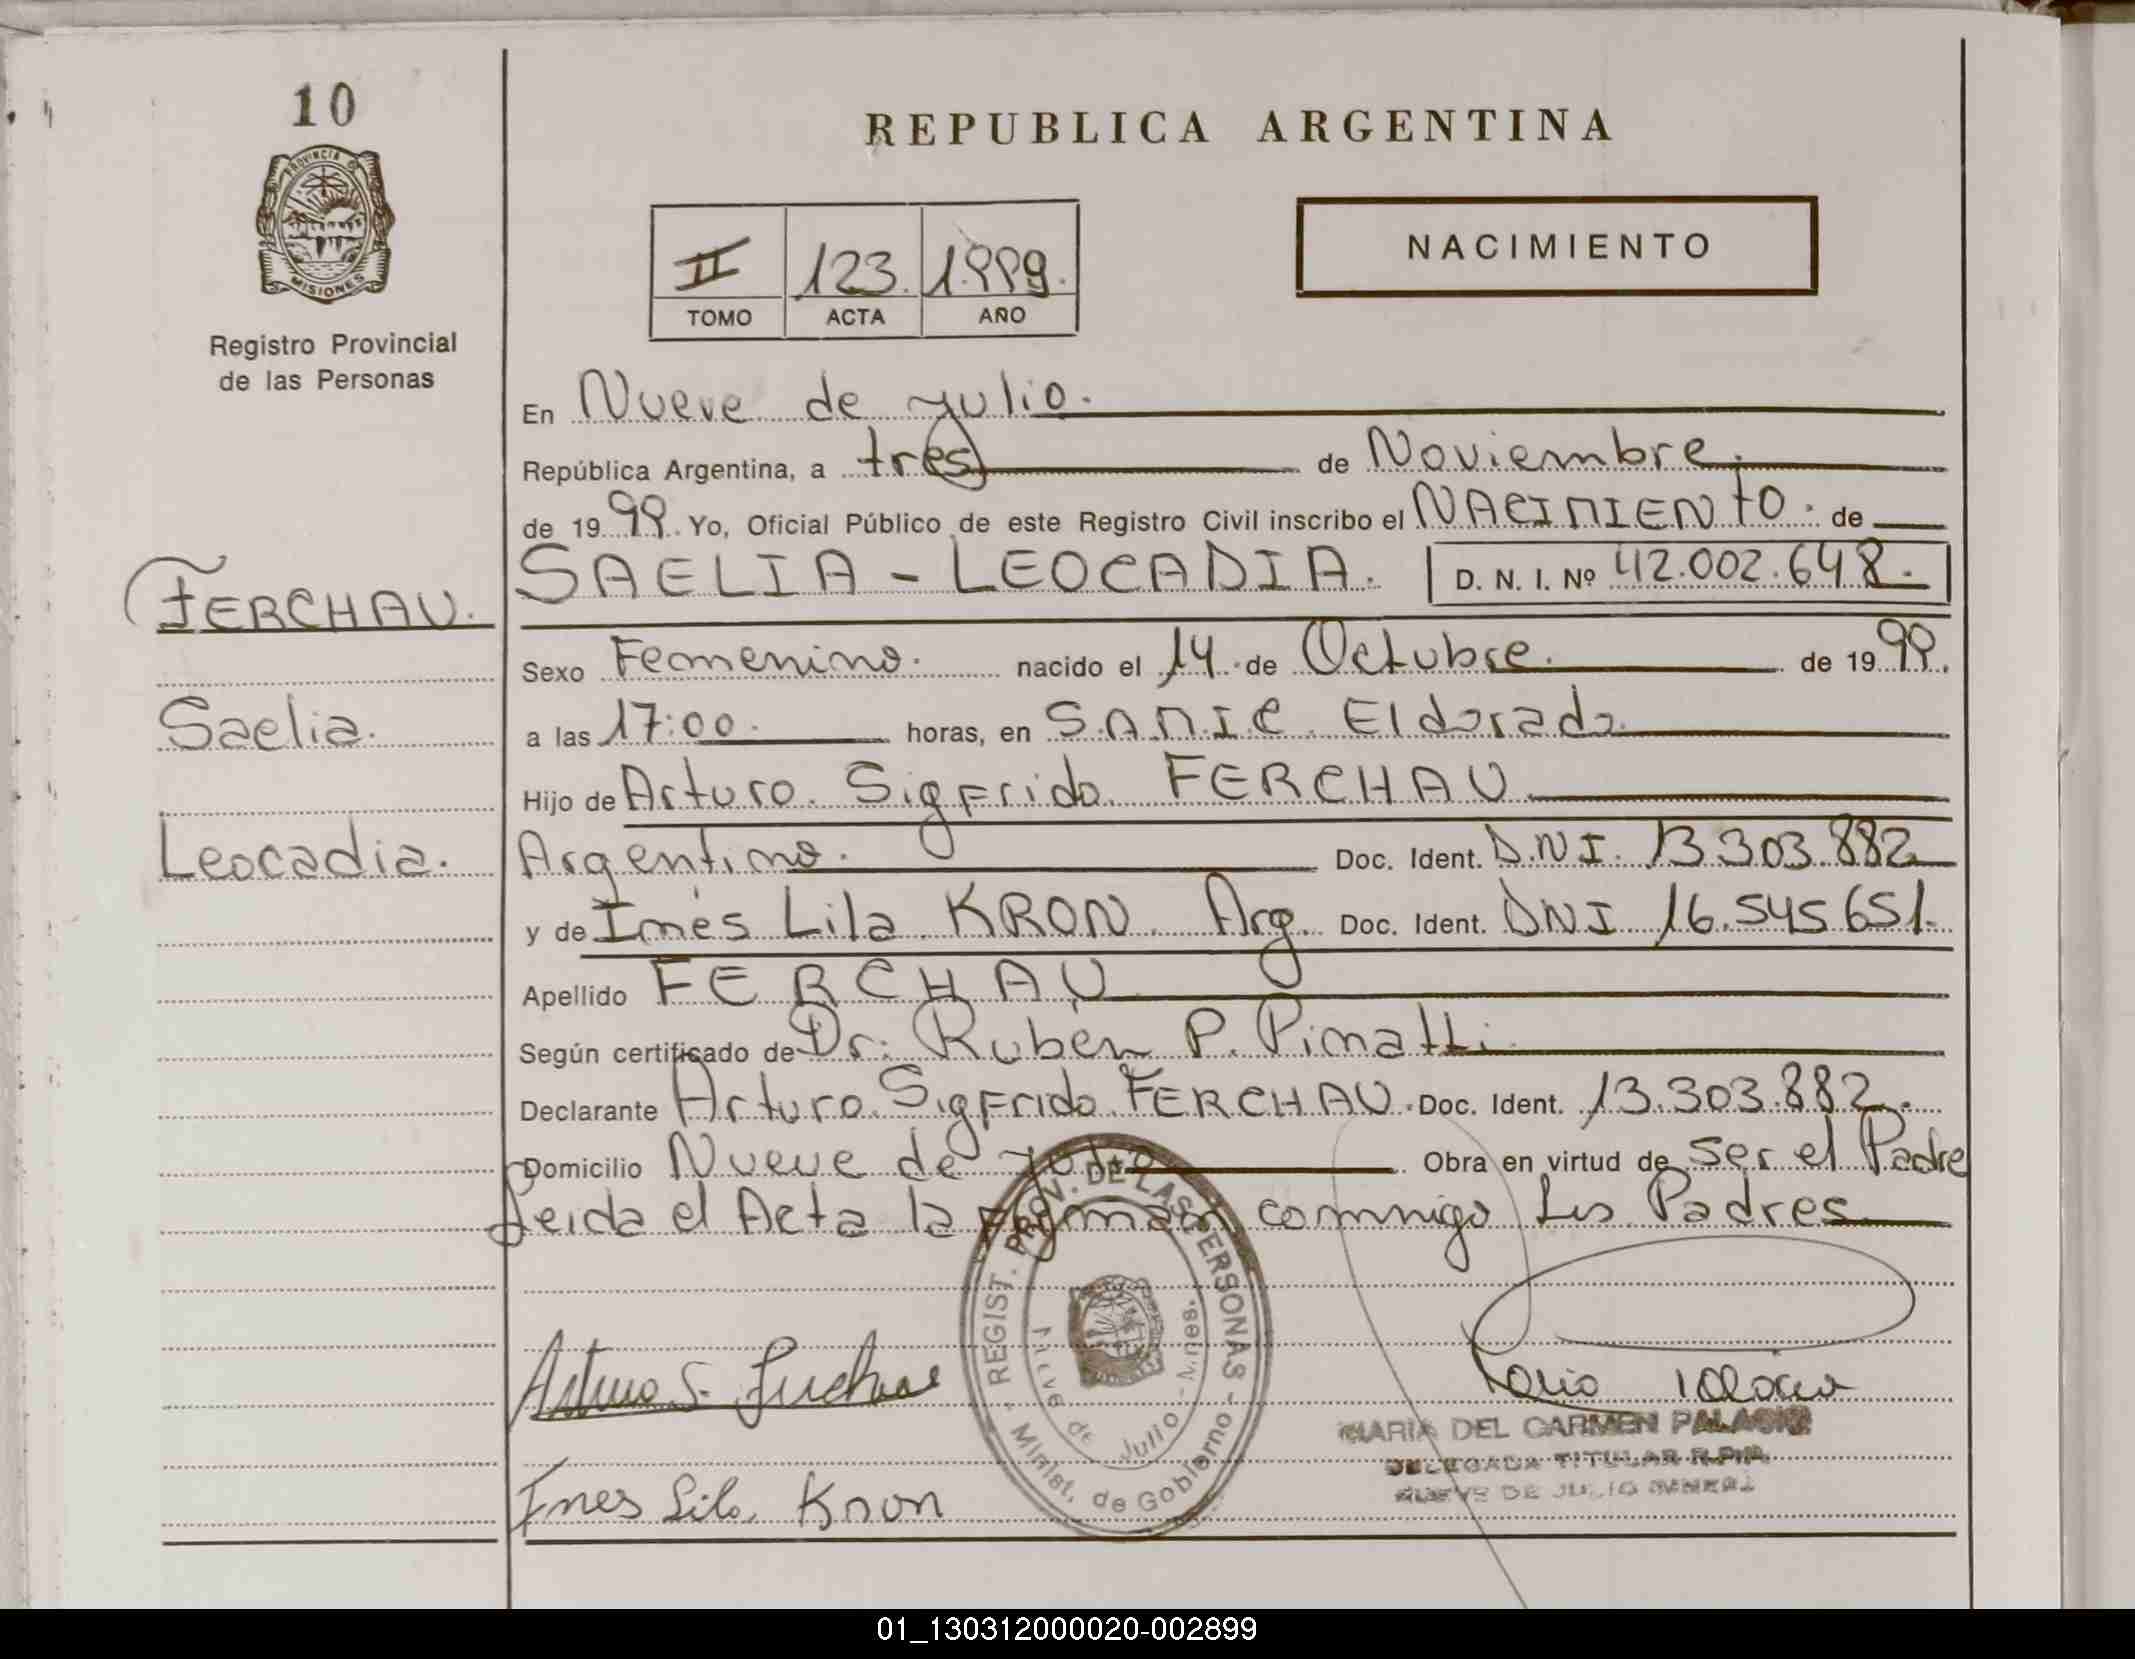 10
PROVINCIA DE
MISIONES
Registro Provincial
de las Personas
FERCHAU.
Saelia.
Leocadia.
REPUBLICA ARGENTINA
II 123. 1.999.
TOMO ACTA AÑO
NACIMIENTO
En Nueve de Julio.
República Argentina, a tres de Noviembre.
de 1999. Yo, Oficial Público de este Registro Civil inscribo el NACIMIENTO. de
SAELIA - LEOCADIA. D. N. I. Nº 42.002.648.
Sexo Femenino. nacido el 14 de Octubre. de 1999.
a las 17:00. horas, en S.A.M.I.C. Eldorado.
Hijo de Arturo. Sigfrido. FERCHAU.
Argentino. Doc. Ident. D.N.I. 13.303.882
y de Inés Lila KRON. Arg. Doc. Ident. DNI 16.545.651.
Apellido FERCHAU
Según certificado de Dr. Ruben P. Pimatti.
Declarante Arturo Sigfrido FERCHAU. Doc. Ident. 13.303.882.
Domicilio Nueve de Julio Obra en virtud de ser el Padre
Leida el Acta la firman conmigo Los Padres
REGIST. PROV. DE LAS PERSONAS - Minist. de Gobierno -
Nueve de Julio - Mnes.
Arturo S. Ferchau
Ines Lila Kron
MARIA DEL CARMEN PALACIO
DELEGADA TITULAR R.P.P.
NUEVE DE JULIO
01_130312000020-002899